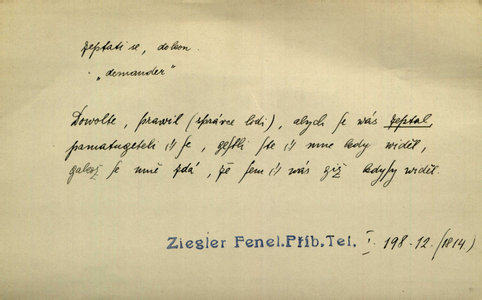 zeptati se, dokon.
„demander“
Dowolte, prawil (spráwce lodi), abych se wás zeptal,
pamatugeteli se, gestli ste mne kdy widěl,
se mně zdá, že sem wás giž widěl.
Ziegler Fenel.Příb.Tel. I. 198-12. (1814)